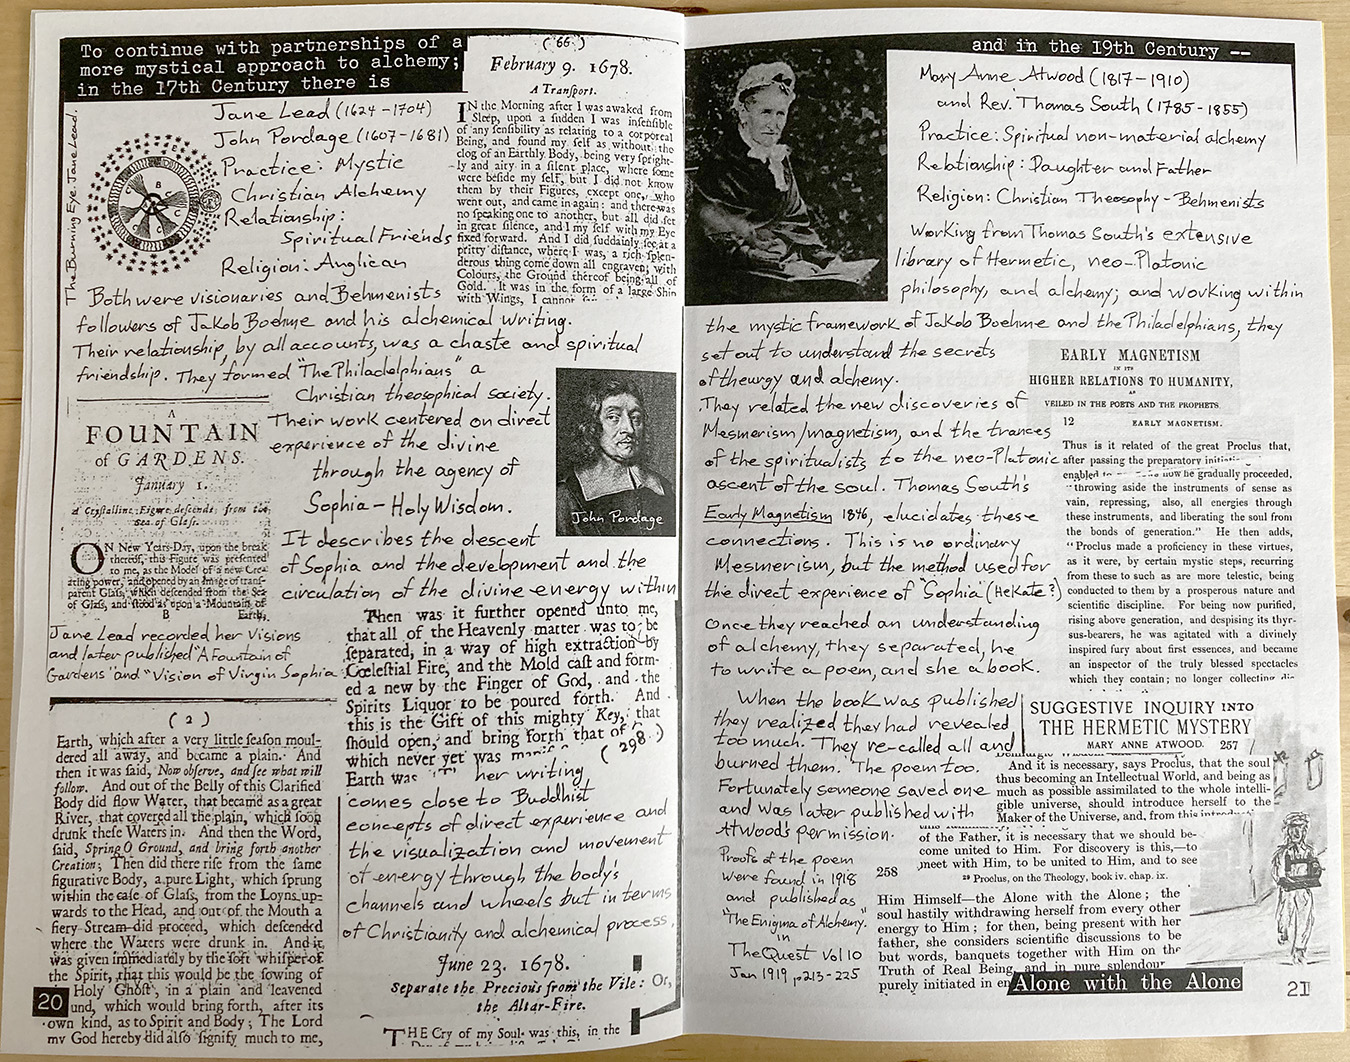 To continue with partnerships of a
more mystical approach to alchemy;
in the 17th Century there is
The Burning Eye. Jane Lead.
Jane Lead (1624-1704)
John Pordage (1607-1681)
Practice: Mystic
Christian Alchemy
Relationship:
Spiritual Friends
Religion: Anglican
Both were visionaries and Behmenists
followers of Jakob Boehme and his alchemical writing.
Their relationship, by all accounts, was a chaste and spiritual
friendship. They formed "The Philadelphians" a
Christian theosophical society.
Their work centered on direct
experience of the divine
through the agency of
Sophia - Holy Wisdom.
It describes the descent
of Sophia and the development and the
circulation of the divine energy within
(66.)
February 9. 1678.
A Transport.
IN the Morning after I was awaked from
Sleep, upon a sudden I was insensible
of any sensibility as relating to a corporeal
Being, and found my self as without the
clog of an Earthly Body, being very spright-
ly and airy in a silent place, where some
were beside my self, but I did not know
them by their Figures, except one, who
went out, and came in again: and there was
no speaking one to another, but all did set
in great silence, and I my self with my Eye
fixed forward. And I did suddainly see at a
pritty distance, where I was, a rich splen-
derous thing come down all engraven with
Colours, the Ground thereof being all of
Gold. It was in the form of a large Ship
with Wings, I cannot
John Pordage
A
FOUNTAIN
of GARDENS.
January 1.
A Crystalline Figure descends from the
Sea of Glass.
ON New Years-Day, upon the break
thereof, this Figure was presented
to me, as the Model of a new Cre-
ating power, and opened by an Image of trans-
parent Glass, which descended from the Sea
of Glass, and stood as upon a Mountain of
B Earth,
Jane Lead recorded her Visions
and later published "A Fountain of
Gardens" and "Vision of Virgin Sophia
(2)
Earth, which after a very little season moul-
dered all away, and became a plain. And
then it was said, Now observe, and see what will
follow. And out of the Belly of this Clarified
Body did flow Water, that became as a great
River, that covered all the plain, which soon
drunk these Waters in. And then the Word,
said, Spring O Ground, and bring forth another
Creation; Then did there rise from the same
figurative Body, a pure Light, which sprung
within the case of Glass, from the Loyns up-
wards to the Head, and out of the Mouth a
fiery Stream did proceed, which descended
where the Waters were drunk in. And it
was given immediately by the soft whisper of
the Spirit, that this would be the sowing of
Holy Ghost, in a plain and leavened
und, which would bring forth, after its
own kind, as to Spirit and Body; The Lord
my God hereby did also signify much to me,
20
Then was it further opened unto me,
that all of the Heavenly matter was to be
separated, in a way of high extraction by
Cœlestial Fire, and the Mold cast and form-
ed a new by the Finger of God, and the
Spirits Liquor to be poured forth. And
this is the Gift of this mighty Key, that
should open, and bring forth that of
which never yet was
(298.)
Earth was
her writing
comes close to Buddhist
concepts of direct experience and
the visualization and movement
of energy through the body's
channels and wheels but in terms
of Christianity and alchemical process.
June 23. 1678.
Separate the Precious from the Vile: Or,
the Altar-Fire.
THE Cry of my Soul was this, in the
and in the 19th Century --
Mary Anne Atwood (1817-1910)
and Rev. Thomas South (1785-1855)
Practice: Spiritual non-material alchemy
Relationship: Daughter and Father
Religion: Christian Theosophy - Behmenists
Working from Thomas South's extensive
library of Hermetic, neo-Platonic
philosophy, and alchemy; and working within
the mystic framework of Jakob Boehme and the Philadelphians, they
set out to understand the secrets
of theurgy and alchemy.
They related the new discoveries of
Mesmerism/magnetism, and the trances
of the spiritualists to the neo-Platonic
ascent of the soul. Thomas South's
Early Magnetism 1846, elucidates these
connections. This is no ordinary
Mesmerism, but the method used for
the direct experience of "Sophia" (Hekate?)
Once they reached an understanding
of alchemy, they separated, he
to write a poem, and she a book.
When the book was published
they realized they had revealed
too much. They re-called all and
burned them. The poem too.
Fortunately someone saved one
and was later published with
Atwood's permission.
Proofs of the poem
were found in 1918
and published as
"The Enigma of Alchemy."
in
The Quest Vol 10
Jan 1919 p213-225
EARLY MAGNETISM
IN ITS
HIGHER RELATIONS TO HUMANITY,
AS
VEILED IN THE POETS AND THE PROPHETS.
12 EARLY MAGNETISM.
Thus is it related of the great Proclus that,
after passing the preparatory
enabled to now he gradually proceeded,
"throwing aside the instruments of sense as
vain, repressing, also, all energies through
these instruments, and liberating the soul from
the bonds of generation." He then adds,
"Proclus made a proficiency in these virtues,
as it were, by certain mystic steps, recurring
from these to such as are more telestic, being
conducted to them by a prosperous nature and
scientific discipline. For being now purified,
rising above generation, and despising its thyr-
sus-bearers, he was agitated with a divinely
inspired fury about first essences, and became
an inspector of the truly blessed spectacles
which they contain; no longer collecting
SUGGESTIVE INQUIRY INTO
THE HERMETIC MYSTERY
MARY ANNE ATWOOD. 257
And it is necessary, says Proclus, that the soul
thus becoming an Intellectual World, and being as
much as possible assimilated to the whole intelli-
gible universe, should introduce herself to the
Maker of the Universe, and, from this
of the Father, it is necessary that we should be-
come united to Him. For discovery is this,—to
meet with Him, to be united to Him, and to see
258
29 Proclus, on the Theology, book iv. chap. ix.
Him Himself—the Alone with the Alone; the
soul hastily withdrawing herself from every other
energy to Him; for then, being present with her
father, she considers scientific discussions to be
but words, banquets together with Him on the
Truth of Real Being, and in pure splendour
purely initiated in
Alone with the Alone
21